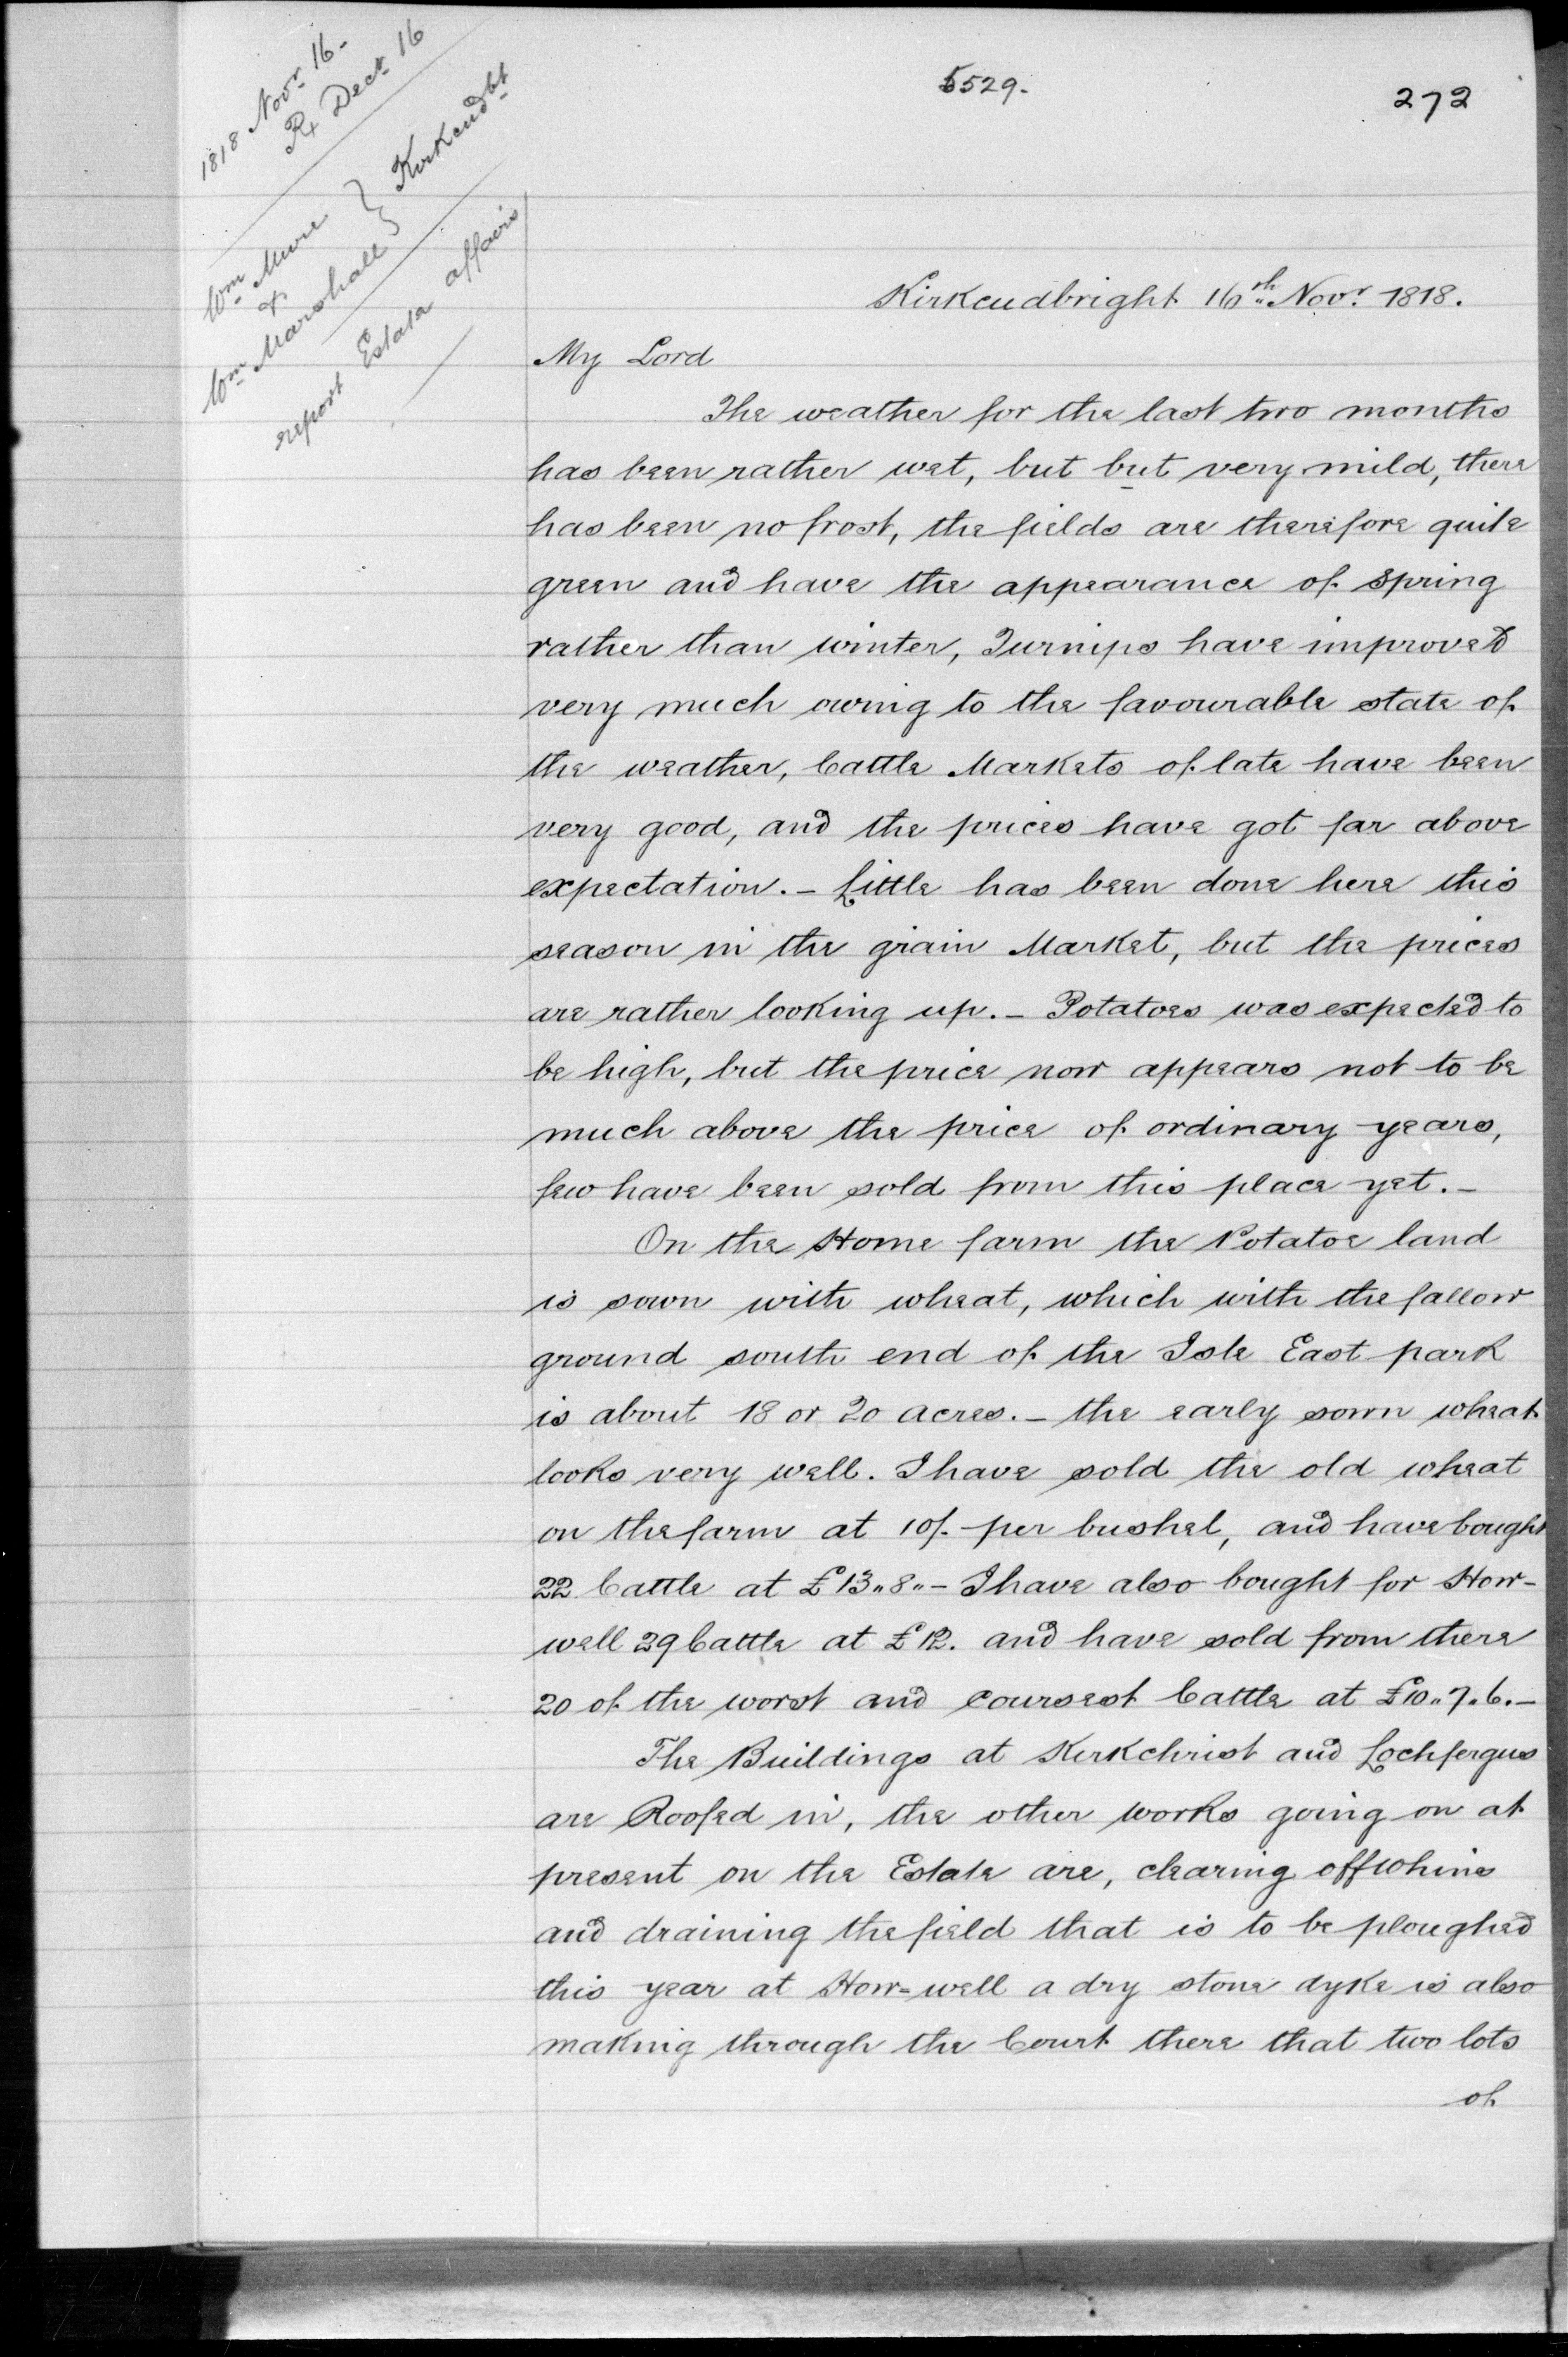 5529.
272
1818 Novr 16.
Rx Decr 16
Wm Mure
&
Wm Marshall } Kirkcudbt
report Estate affairs
Kirkcudbright 16th Novr 1818.
My Lord
The weather for the last two months
has been rather wet, but but very mild, there
has been no frost, the fields are therefore quite
green and have the appearance of Spring
rather than winter, Turnips have improved
very much owing to the favourable state of
the weather, Cattle Markets of late have been
very good, and the prices have got far above
expectation. – Little has been done here this
season in the grain Market, but the prices
are rather looking up. – Potatoes was expected to
be high, but the price now appears not to be
much above the price of ordinary years,
few have been sold from this place yet. –
On the Home farm the Potatoe land
is sown with wheat, which with the fallow
ground south end of the Isle East park
is about 18 or 20 acres. – the early sown wheat
looks very well. I have sold the old wheat
on the farm at 10/. per bushel, and have bought
22 Cattle at £13"8"– I have also bought for How-
well 29 Cattle at £12. and have sold from there
20 of the worst and coursest Cattle at £10"7"6. –
The Buildings at Kirkchrist and Lochfergus
are Roofed in, the other works going on at
present on the Estate are, clearing off whins
and draining the field that is to be ploughed
this year at How=well a dry stone dyke is also
making through the Court there that two lots
of